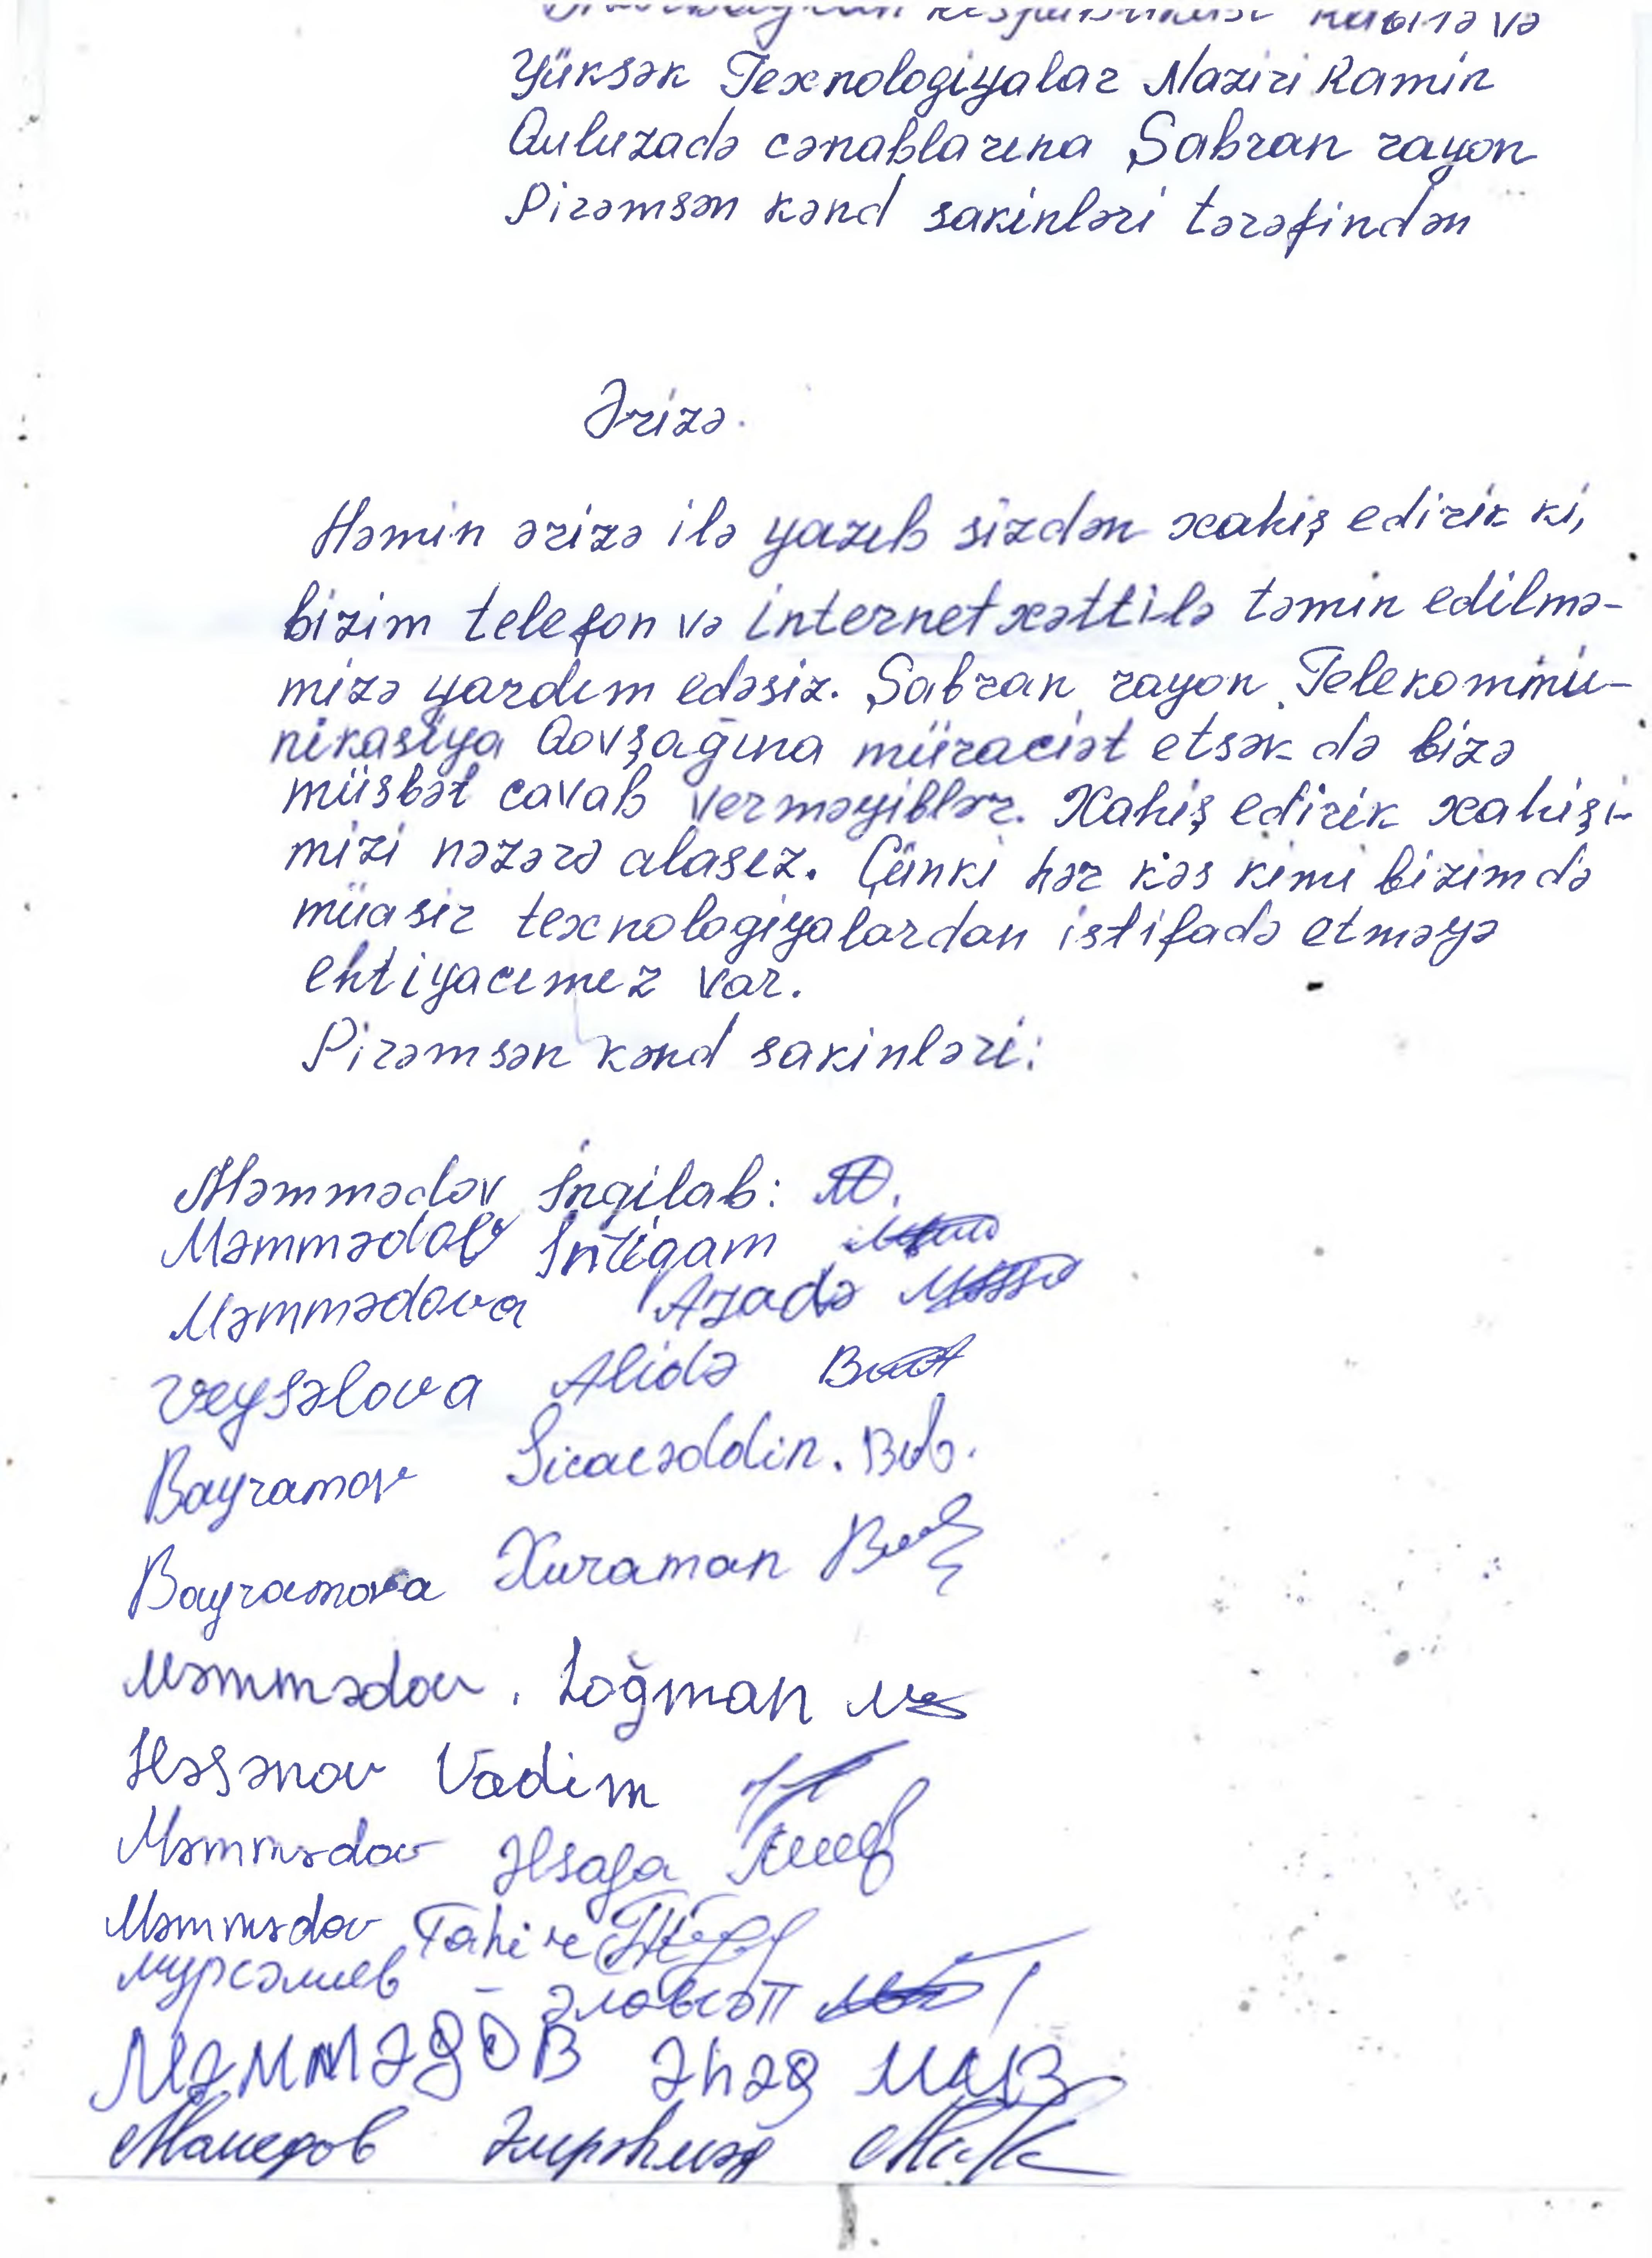 Azərbaycan Respublikası Rabitə və
Yüksək Texnologiyalar Naziri Ramin
Quluzadə cənablarına Şabran rayon
Pirəmsən kənd sakinləri tərəfindən
Ərizə.
Həmin ərizə ilə yazıb sizdən xahiş edirik ki,
bizim telefon və internet xəttilə təmin edilmə-
mizə yardım edəsiz. Şabran rayon Telekommu-
nikasiya Qovşağına müraciət etsək də bizə
müsbət cavab verməyiblər. Xahiş edirik xahişi-
mizi nəzərə alasız. Çünki hər kəs kimi bizimdə
müasir texnologiyalardan istifadə etməyə
ehtiyacımız var.
Pirəmsən kənd sakinləri:
Məmmədov İnqilab:
Məmmədov İntiqam
Məmmədova Azadə
Veysəlova Alidə
Bayramov Şücaəddin.
Bayramova Xuraman
Məmmədov. Loğman
Həsənov Vadim
Məmmədov Əlsafa
Məmmədov Tahir
Мурсəлиев - Əловсəт
Мəммəдов Əһəд
Мамедов